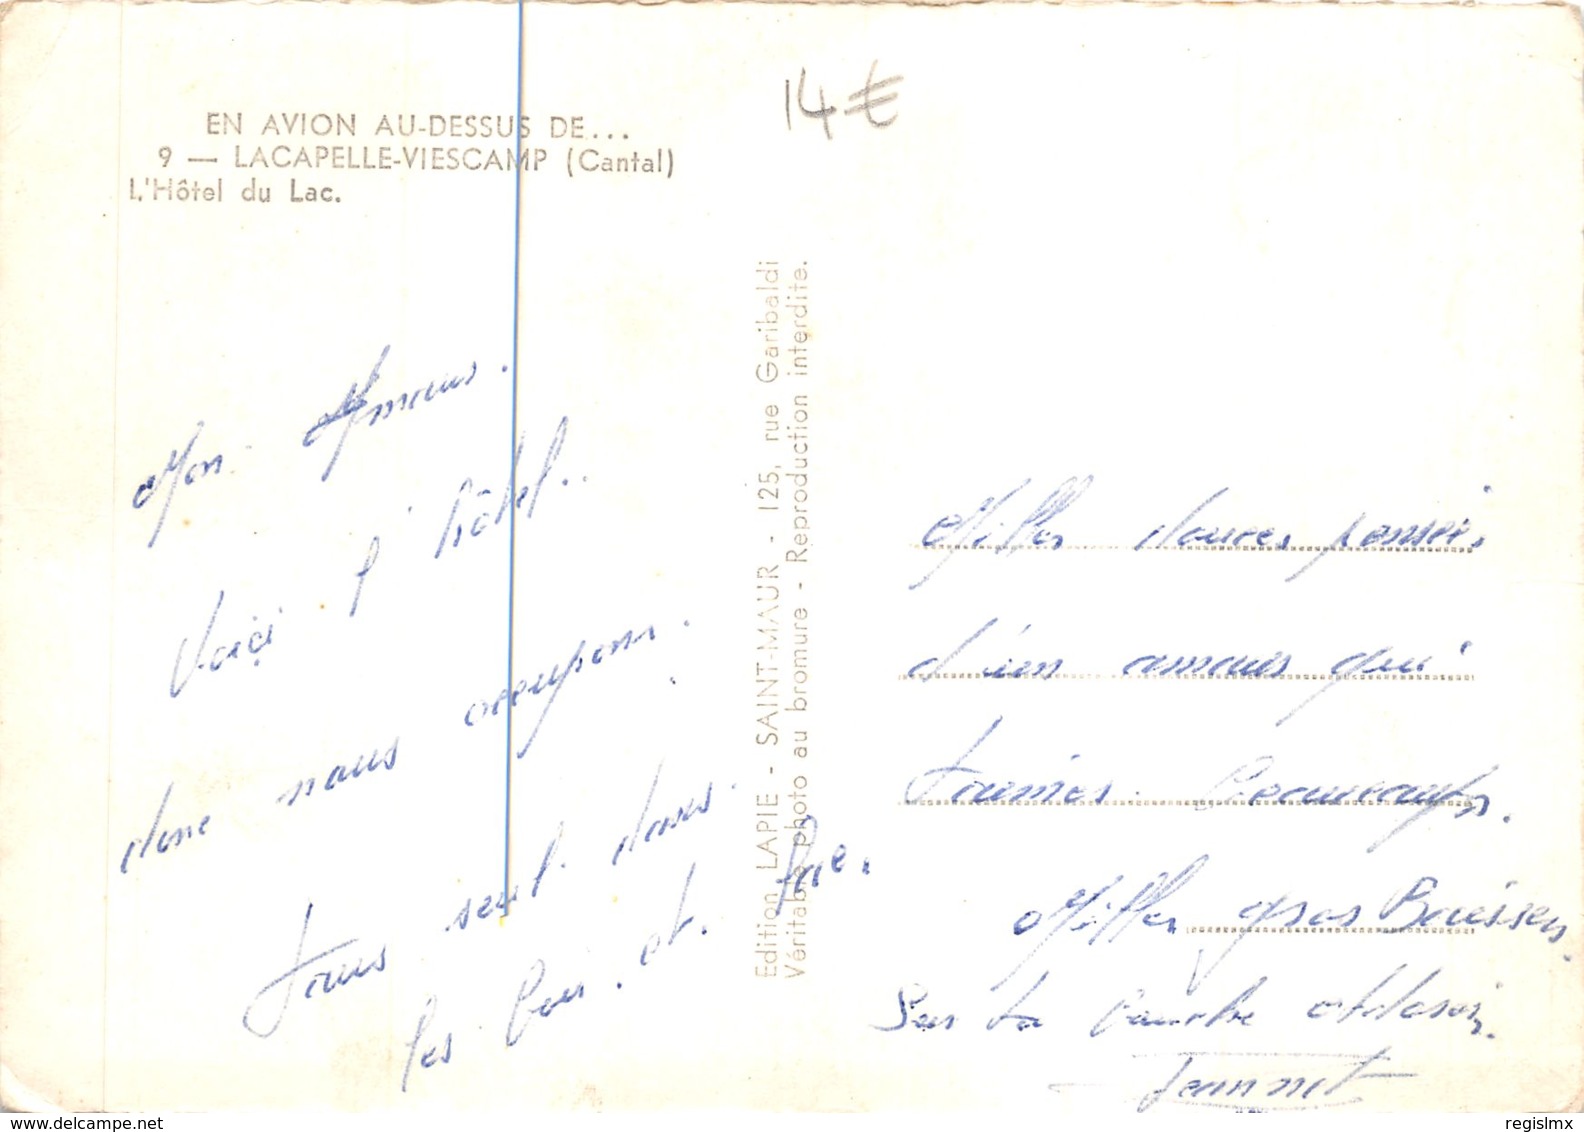 EN AVION AU-DESSUS DE...
9 — LACAPELLE-VIESCAMP (Cantal)
L'Hôtel du Lac.
14€
Mon Amour.
Voici l'hôtel..
donc nous occupons.
tous seul. dans.
les bois. et. lac.
Edition LAPIE - SAINT-MAUR - 125, rue Garibaldi
Véritable photo au bromure - Reproduction interdite.
Milles douces pensées
d'un amour qui
t'aimes. beaucoups.
Milles gros Baisers
Sur ta bouche
Jeannot
delcampe.net
regislmx